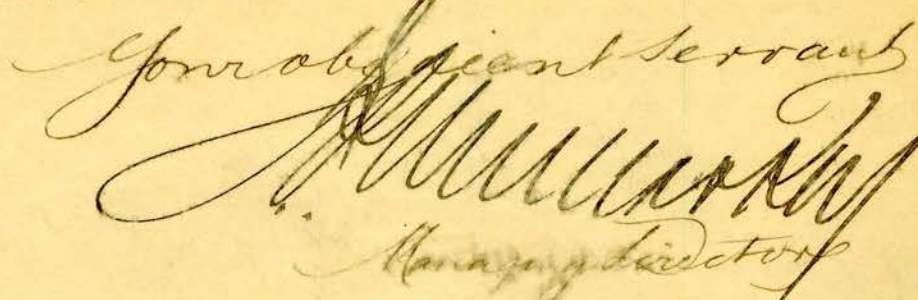 Your obedient servant
Managing Director